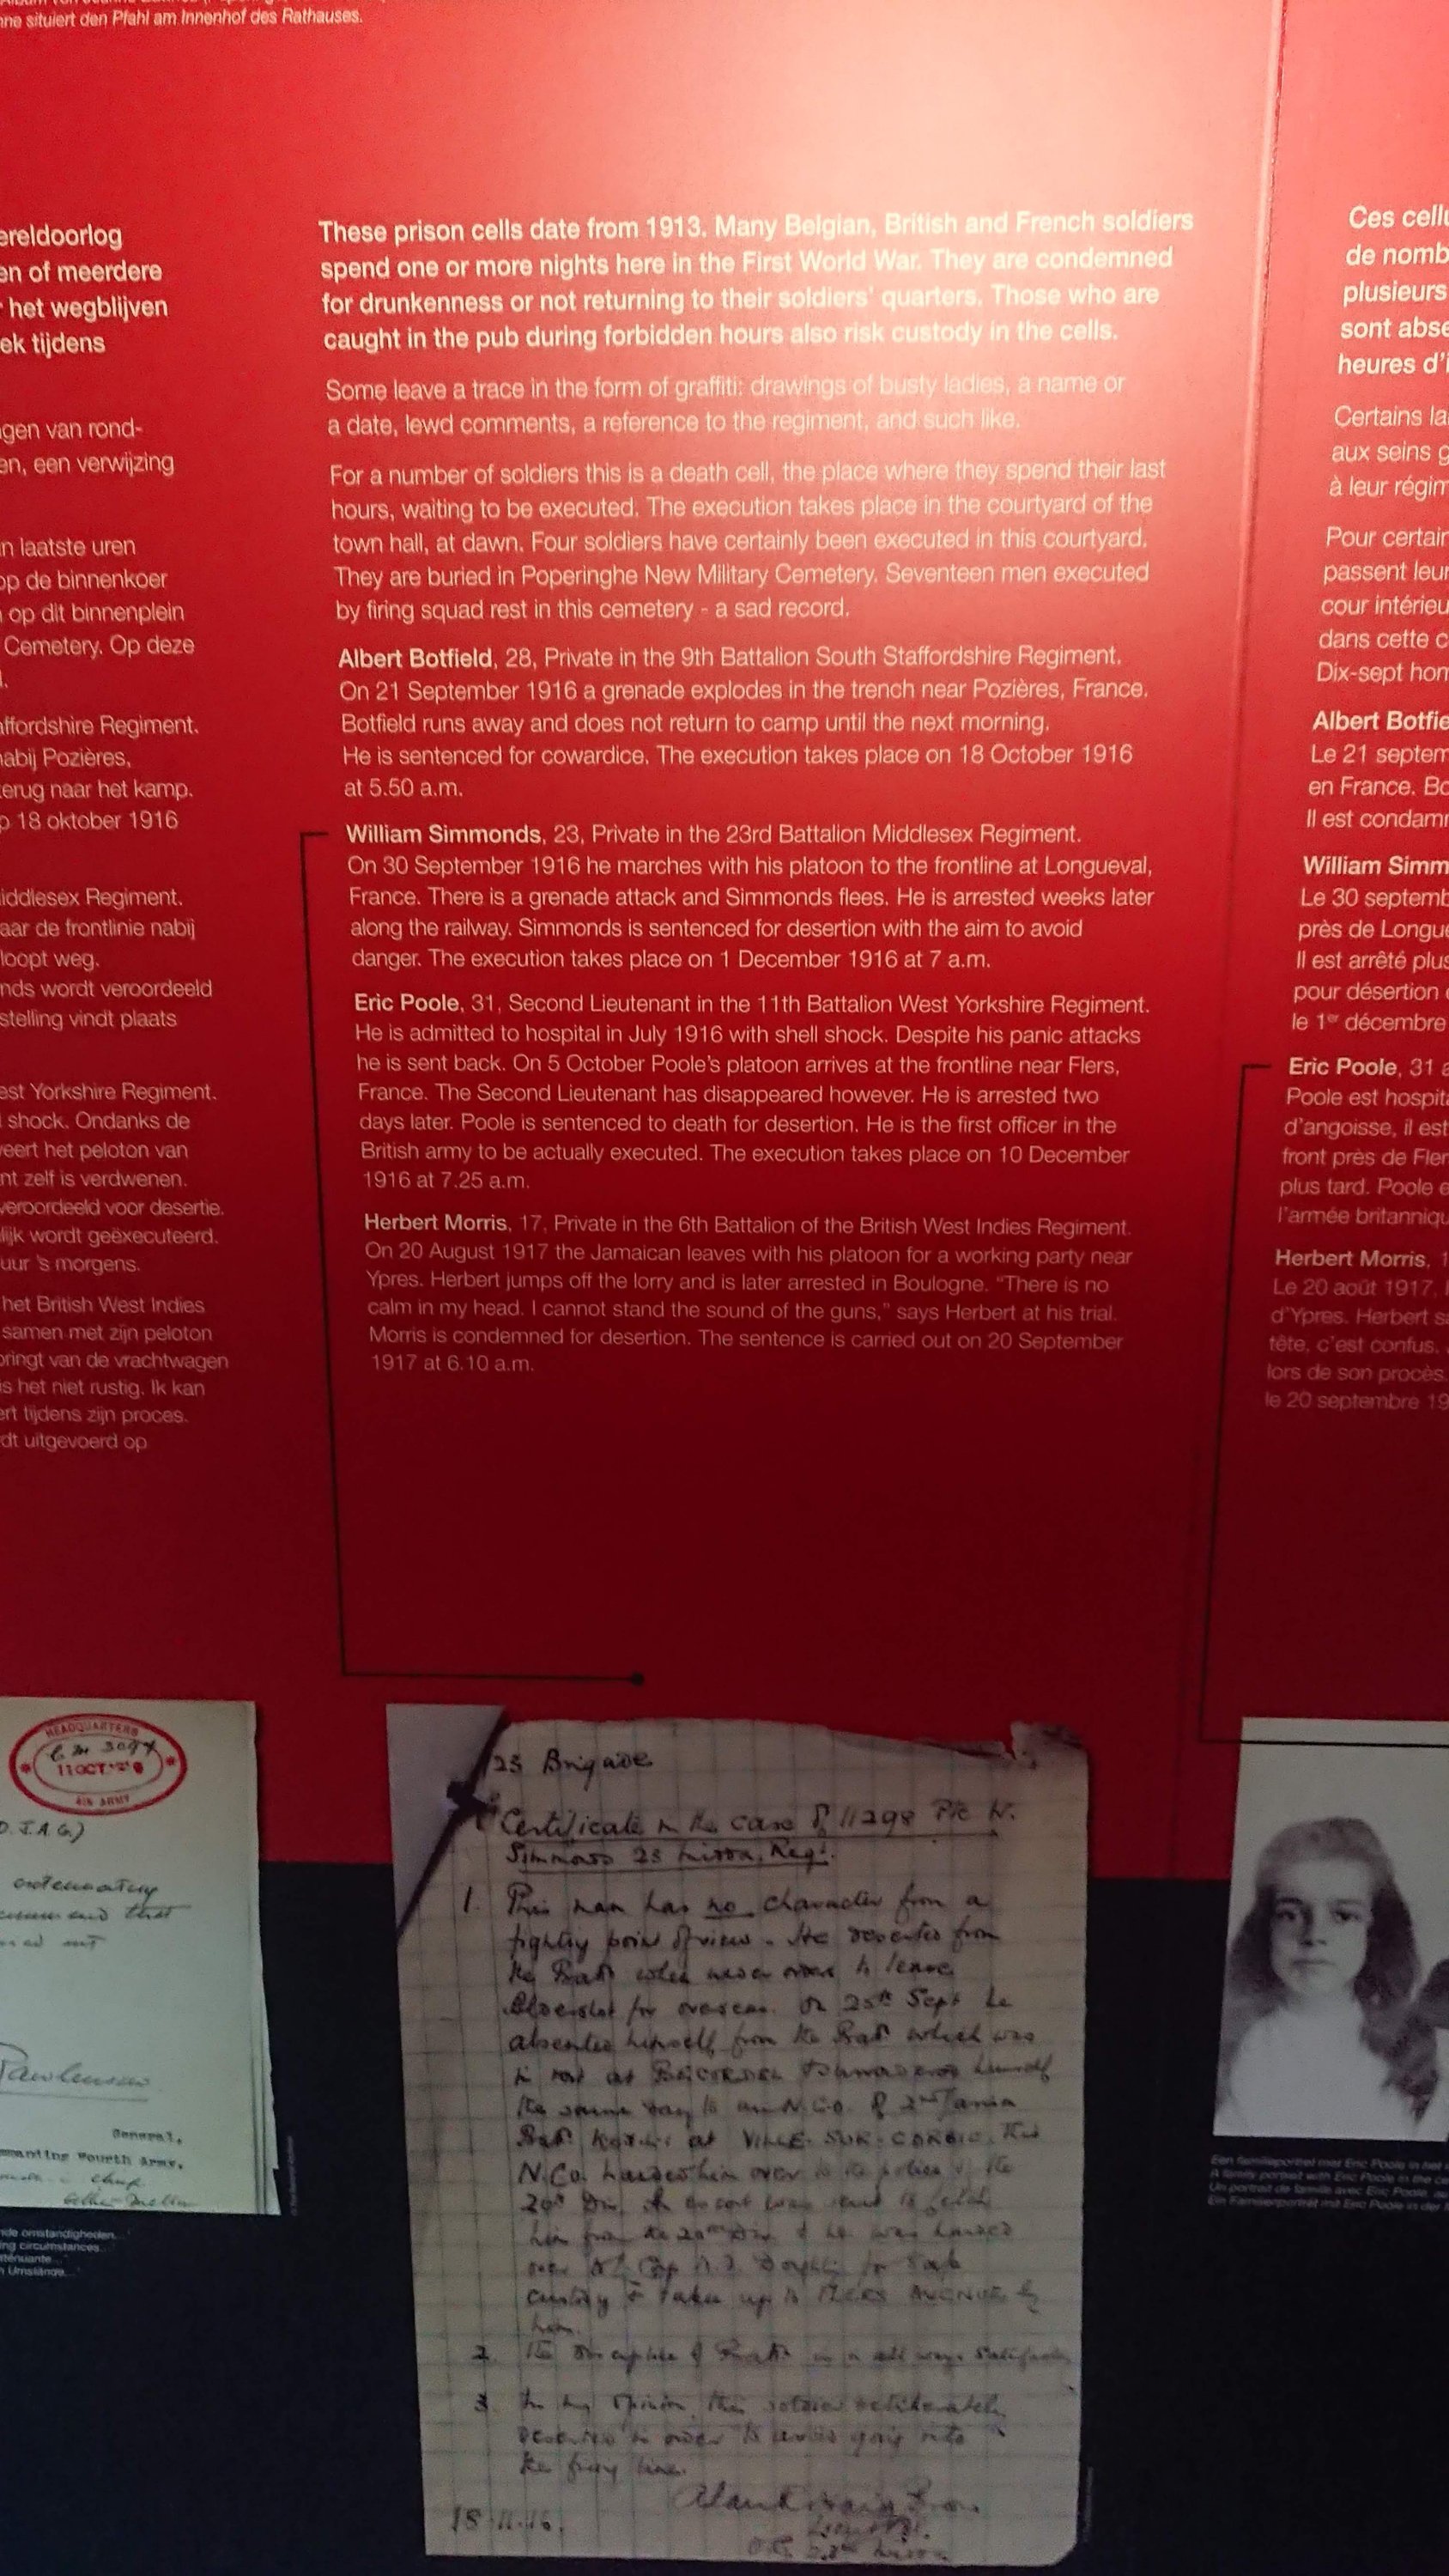 ne situiert den Pfahl am Innenhof des Rathauses.
ereldoorlog
en of meerdere
het wegblijven
ek tijdens
gen van rond-
en, een verwijzing
n laatste uren
op de binnenkoer
op dit binnenplein
Cemetery. Op deze
affordshire Regiment.
nabij Pozières,
terug naar het kamp.
18 oktober 1916
iddlesex Regiment.
aar de frontlinie nabij
loopt weg.
nds wordt veroordeeld
stelling vindt plaats
est Yorkshire Regiment.
shock. Ondanks de
veert het peloton van
nt zelf is verdwenen.
veroordeeld voor desertie.
lijk wordt geëxecuteerd.
uur 's morgens.
het British West Indies
samen met zijn peloton
pringt van de vrachtwagen
s het niet rustig. Ik kan
ert tijdens zijn proces.
dt uitgevoerd op
These prison cells date from 1913. Many Belgian, British and French soldiers
spend one or more nights here in the First World War. They are condemned
for drunkenness or not returning to their soldiers' quarters. Those who are
caught in the pub during forbidden hours also risk custody in the cells.
Some leave a trace in the form of graffiti: drawings of busty ladies, a name or
a date, lewd comments, a reference to the regiment, and such like.
For a number of soldiers this is a death cell, the place where they spend their last
hours, waiting to be executed. The execution takes place in the courtyard of the
town hall, at dawn. Four soldiers have certainly been executed in this courtyard.
They are buried in Poperinghe New Military Cemetery. Seventeen men executed
by firing squad rest in this cemetery - a sad record.
Albert Botfield, 28, Private in the 9th Battalion South Staffordshire Regiment.
On 21 September 1916 a grenade explodes in the trench near Pozières, France.
Botfield runs away and does not return to camp until the next morning.
He is sentenced for cowardice. The execution takes place on 18 October 1916
at 5.50 a.m.
William Simmonds, 23, Private in the 23rd Battalion Middlesex Regiment.
On 30 September 1916 he marches with his platoon to the frontline at Longueval,
France. There is a grenade attack and Simmonds flees. He is arrested weeks later
along the railway. Simmonds is sentenced for desertion with the aim to avoid
danger. The execution takes place on 1 December 1916 at 7 a.m.
Eric Poole, 31, Second Lieutenant in the 11th Battalion West Yorkshire Regiment.
He is admitted to hospital in July 1916 with shell shock. Despite his panic attacks
he is sent back. On 5 October Poole's platoon arrives at the frontline near Flers,
France. The Second Lieutenant has disappeared however. He is arrested two
days later. Poole is sentenced to death for desertion. He is the first officer in the
British army to be actually executed. The execution takes place on 10 December
1916 at 7.25 a.m.
Herbert Morris, 17, Private in the 6th Battalion of the British West Indies Regiment.
On 20 August 1917 the Jamaican leaves with his platoon for a working party near
Ypres. Herbert jumps off the lorry and is later arrested in Boulogne. "There is no
calm in my head. I cannot stand the sound of the guns," says Herbert at his trial.
Morris is condemned for desertion. The sentence is carried out on 20 September
1917 at 6.10 a.m.
Ces cellu
de nomb
plusieurs
sont abse
heures d'i
Certains la
aux seins g
à leur régim
Pour certain
passent leur
cour intérieu
dans cette c
Dix-sept hom
Albert Botfie
Le 21 septem
en France. Bo
Il est condamn
William Simm
Le 30 septemb
près de Longue
Il est arrêté plus
pour désertion
le 1er décembre
Eric Poole, 31 a
Poole est hospita
d'angoisse, il est
front près de Fler
plus tard. Poole e
l'armée britanniqu
Herbert Morris, 1
Le 20 août 1917,
d'Ypres. Herbert sa
tête, c'est confus.
lors de son procès.
le 20 septembre 19
HEADQUARTERS
11 OCT
ARMY
D.J.A.G.)
extenuating
that
Rawlinson
General,
manding Fourth Army.
nde omstandigheden...
ng circumstances...
tténuante...
23 Brigade
Certificate in the case of 11298 Pte W.
Simmons 23 Middx. Regt.
1. This man has no character from a
fighting point of view. He deserted from
the Batt when under orders to leave
Aldershot for overseas. On 25th Sept he
absented himself from the Batt which was
in rest at BECORDEL himself
the same day to an N.C.O. of 2nd
at VILLE-SUR-CORBIE. This
N.C.O. handed him over to the police of the
20th Div. An escort was sent to fetch
him from the 20th Div & he was handed
over for safe
custody & taken up to FLERS AVENUE by
him.
2. The discipline of Batt is in all ways satisfactory
3. In my opinion this soldier deliberately
deserted in order to avoid going into
the firing line.
18.11.16.
A family portrait with Eric Poole in the
Un portrait de famille avec Eric Poole
Ein Familienporträt mit Eric Poole in der